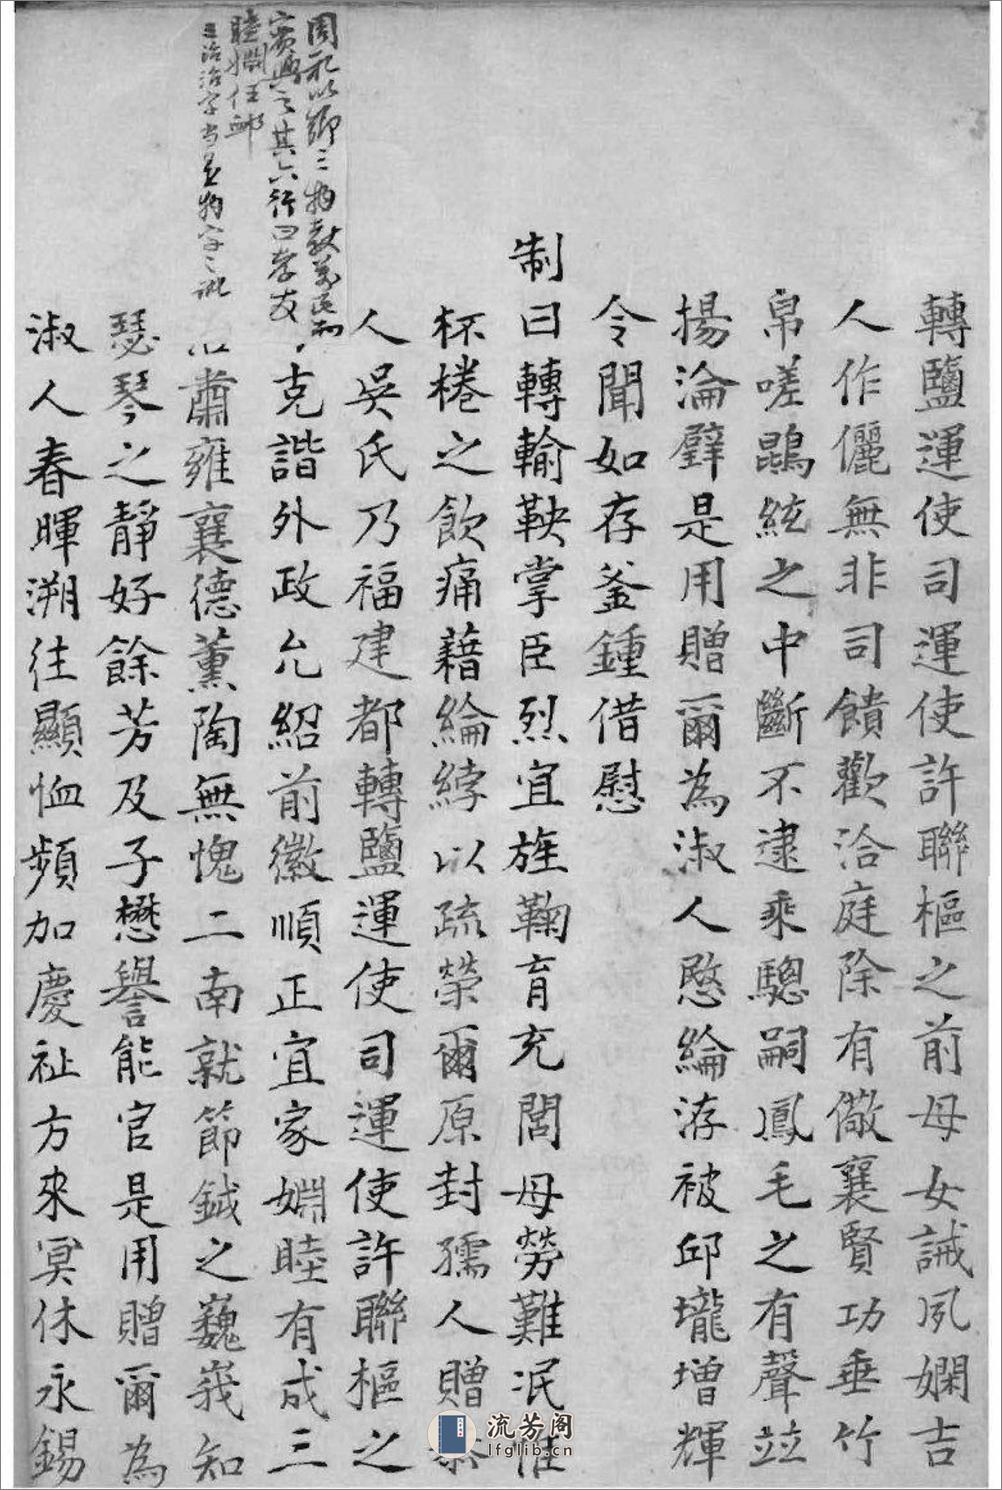 轉鹽運使司運使許聯樞之前母女誡夙嫻吉
人作儷無非司饋歡洽庭除有儆襄賢功垂竹
帛嗟鵾絃之中斷不逮乘驄嗣鳳毛之有聲竝
揚淪璧是用贈爾為淑人愍綸洊被邱壠增輝
令聞如存釜鍾借慰
制曰轉輸鞅掌臣烈宜旌鞠育充閭母勞難泯惟
杯棬之飲痛藉綸綍以疏榮爾原封孺人贈恭
人吳氏乃福建都轉鹽運使司運使許聯樞之
克諧外政允紹前徽順正宜家婣睦有成三
肅雍襄德薰陶無愧二南就節鉞之巍峩知
瑟琴之靜好餘芳及子懋譽能官是用贈爾為
淑人春暉溯往顯恤頻加慶祉方來冥休永錫
周礼以鄉三物教萬民而
賓興之其六行曰孝友
睦婣任卹
三治治字当是物字之訛
流芳阁
lfglib.cn